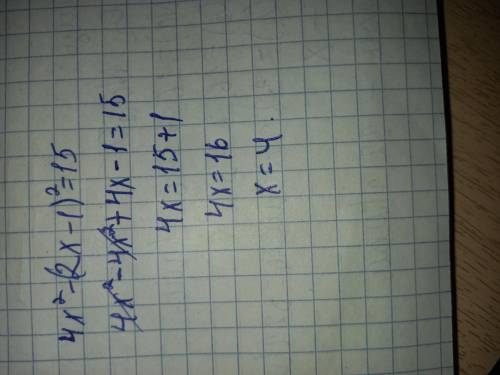 4x²-(2x-1)²=15
4x²-4x²+4x-1=15
4x=15+1
4x=16
x=4.